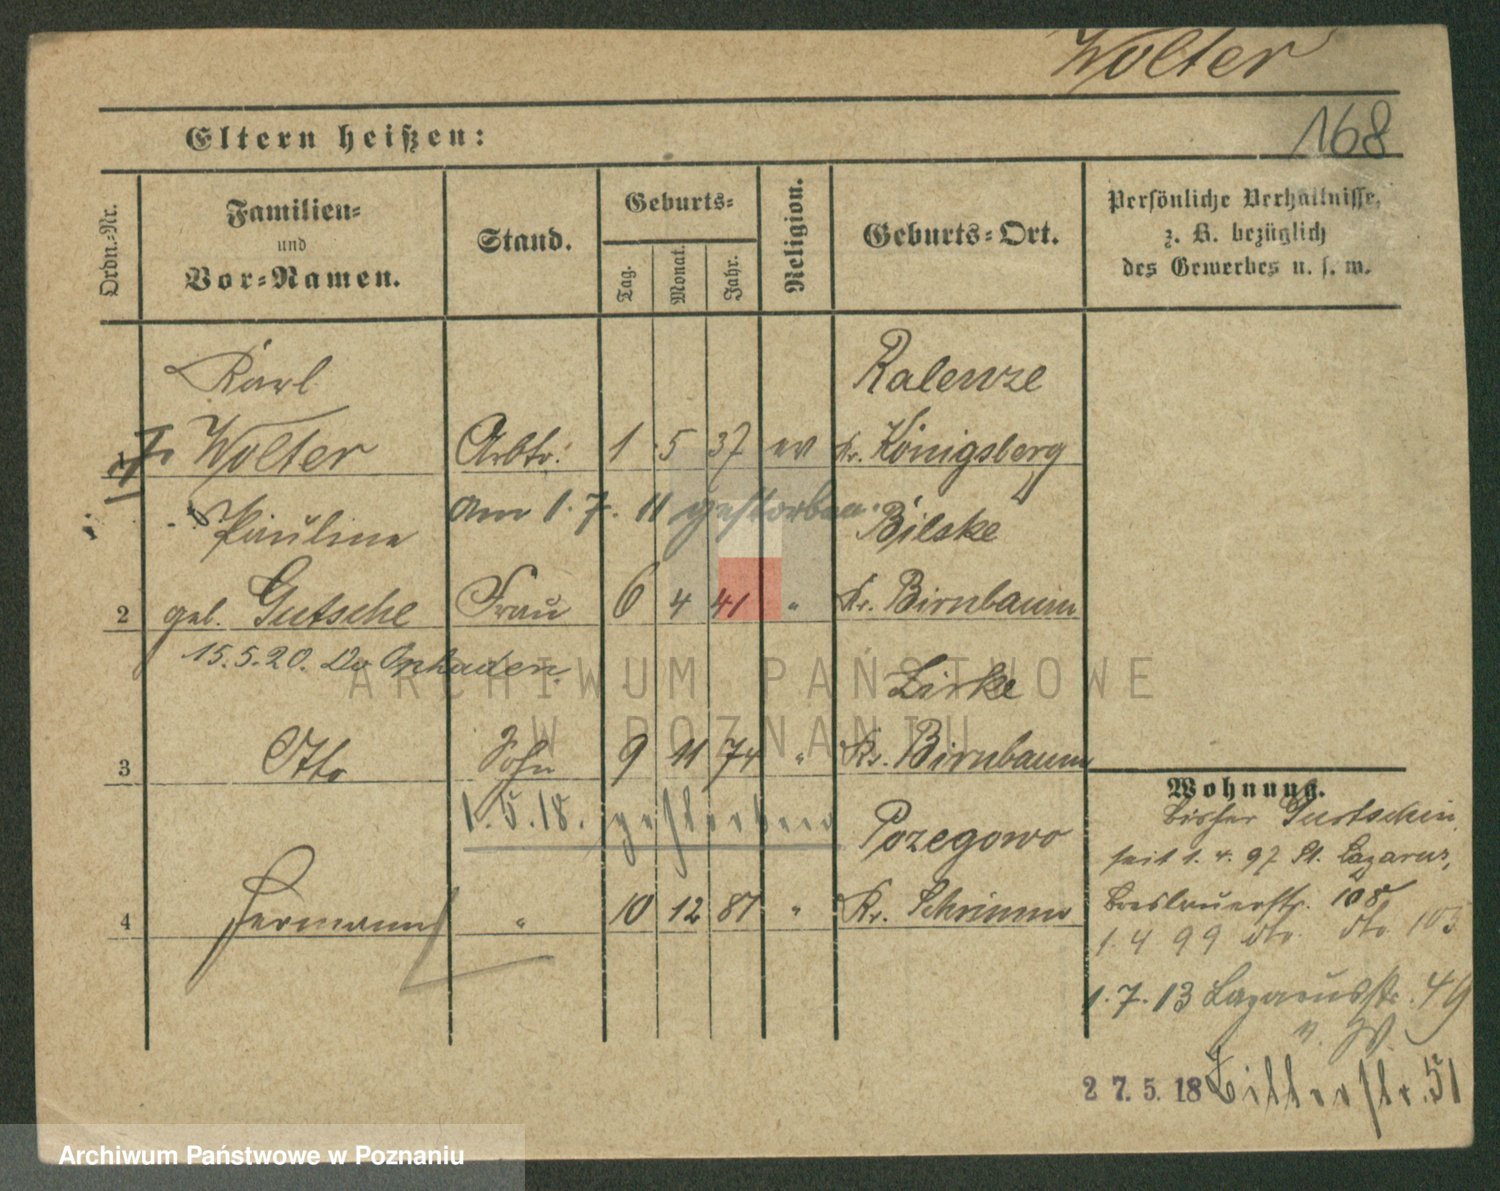 Wolter
168
Eltern heißen:
Ordn.-Nr.
Familien-
und
Vor-Namen.
Stand.
Geburts-
Tag.
Monat.
Jahr.
Religion.
Geburts-Ort.
Persönliche Verhältnisse,
z. B. bezüglich
des Gewerbes u. s. w.
Karl
Wolter Arbtr. 1 5 37 ev Kr. Königsberg
Ralenze
am 1.7.11 gestorben.
Pauline
Bilske
2 geb. Gutsche Frau 6 4 41 " Kr. Birnbaum
15.5.20.
Zirke
3 Otto Sohn 9 11 74 " Kr. Birnbaum
1.5.18. gestorben
Pozegowo
4 Hermann " 10 12 87 " Kr. Schrimm
Wohnung.
bisher Gurtschin
seit 1.4.97 St. Lazarus,
Breslauerstr. 108
1.4 99 dto. dto 105
1.7.13 Lazarusstr. 49
v. W.
27.5.18 str. 51
ARCHIWUM PAŃSTWOWE
W POZNANIU
Archiwum Państwowe w Poznaniu